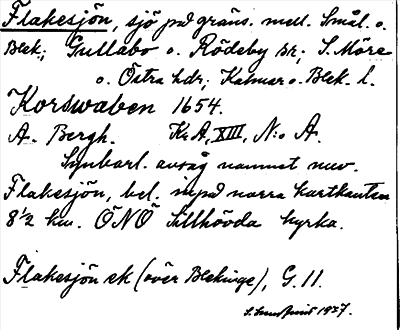 Flakesjön, sjö på gräns. mell. Smål. o.
Blek.; Gullabo o. Rödeby sn; S. Möre
o. Östra hdr; Kalmar o. Blek. l.
Korswaben 1654.
A. Bergh. KrA, XIII, N:o A.
Synbarl. avsåg namnet nuv.
Flakesjön, bel. invid norra kartkanten
8½ km. ÖNÖ Sillhövda kyrka.
Flakesjön ek (över Blekinge), G. 11.
1937.